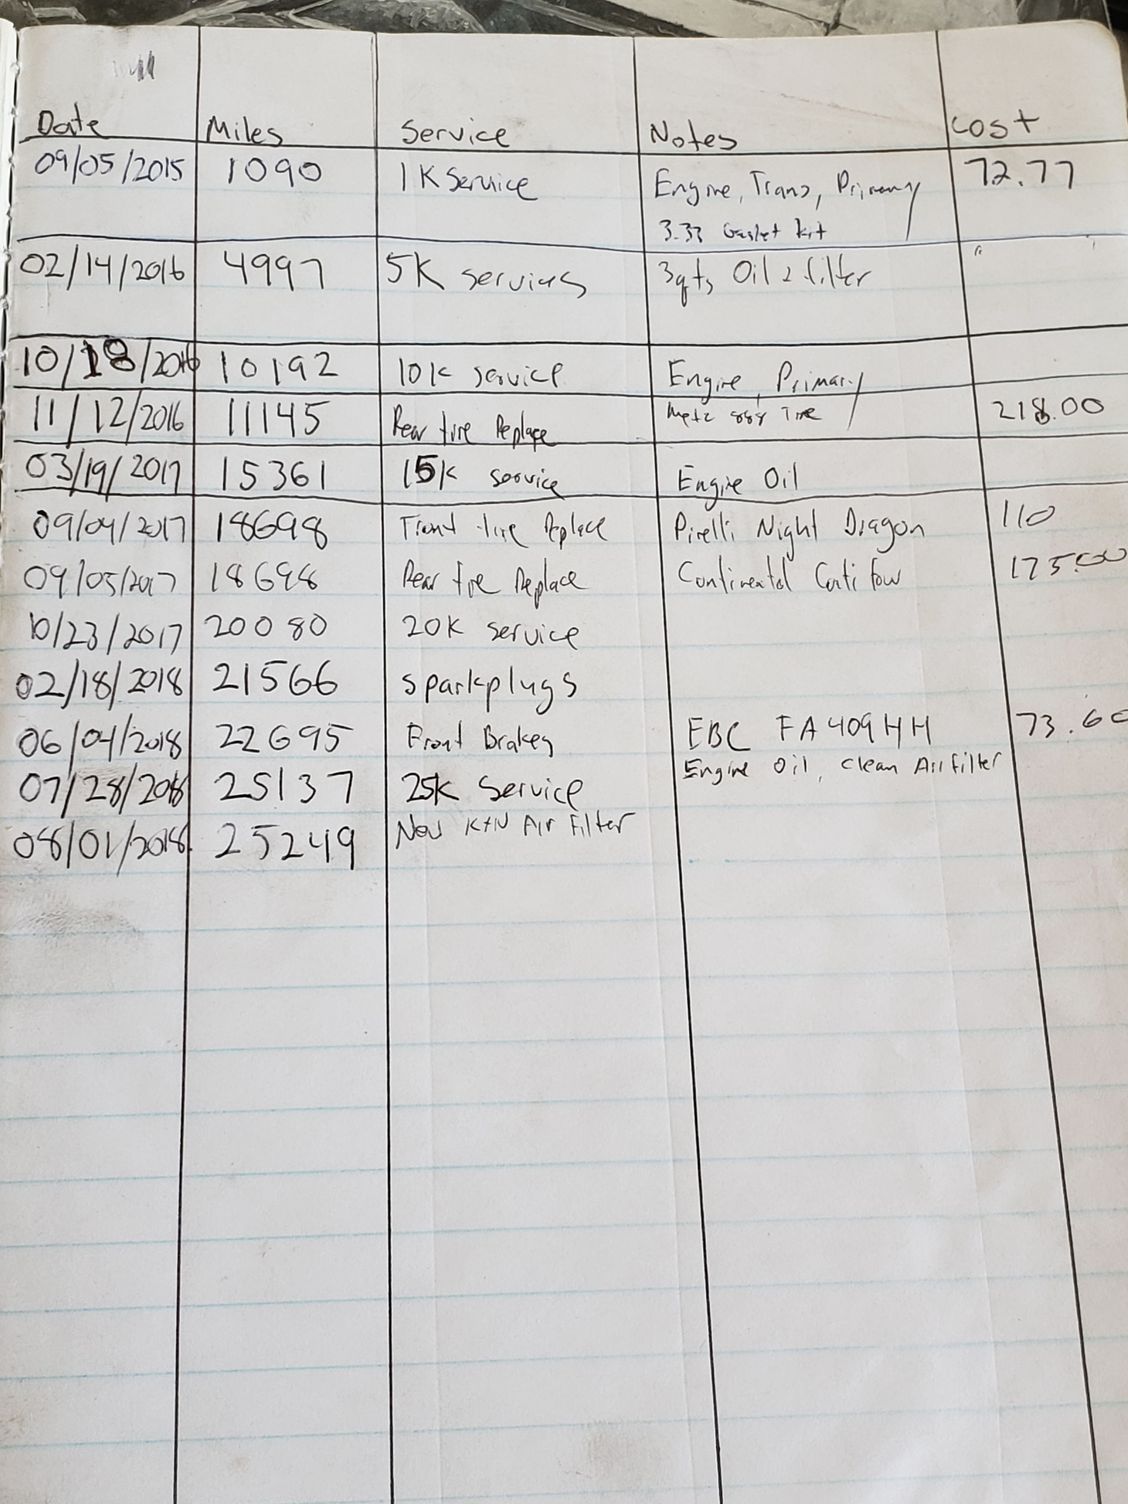 Date Miles Service Notes Cost
09/05/2015 1090 1K Service Engine, Trans, Primary 72.77
3.33 Gasket kit
02/14/2016 4997 5K services 3qts Oil & filter
10/18/2016 10192 10K service Engine, Primary
11/12/2016 11145 Rear tire Replace Metz 888 Tire 218.00
03/19/2017 15361 15K service Engine Oil
09/04/2017 18698 Front tire Replace Pirelli Night Dragon 110
09/05/2017 18698 Rear tire Replace Continental Conti 175.00
10/23/2017 20080 20K service
02/18/2018 21566 sparkplugs
06/04/2018 22695 Front Brakes EBC FA409HH 73.60
07/28/2018 25137 25K Service Engine Oil, Clean Air Filter
08/01/2018 25249 New K+N Air Filter